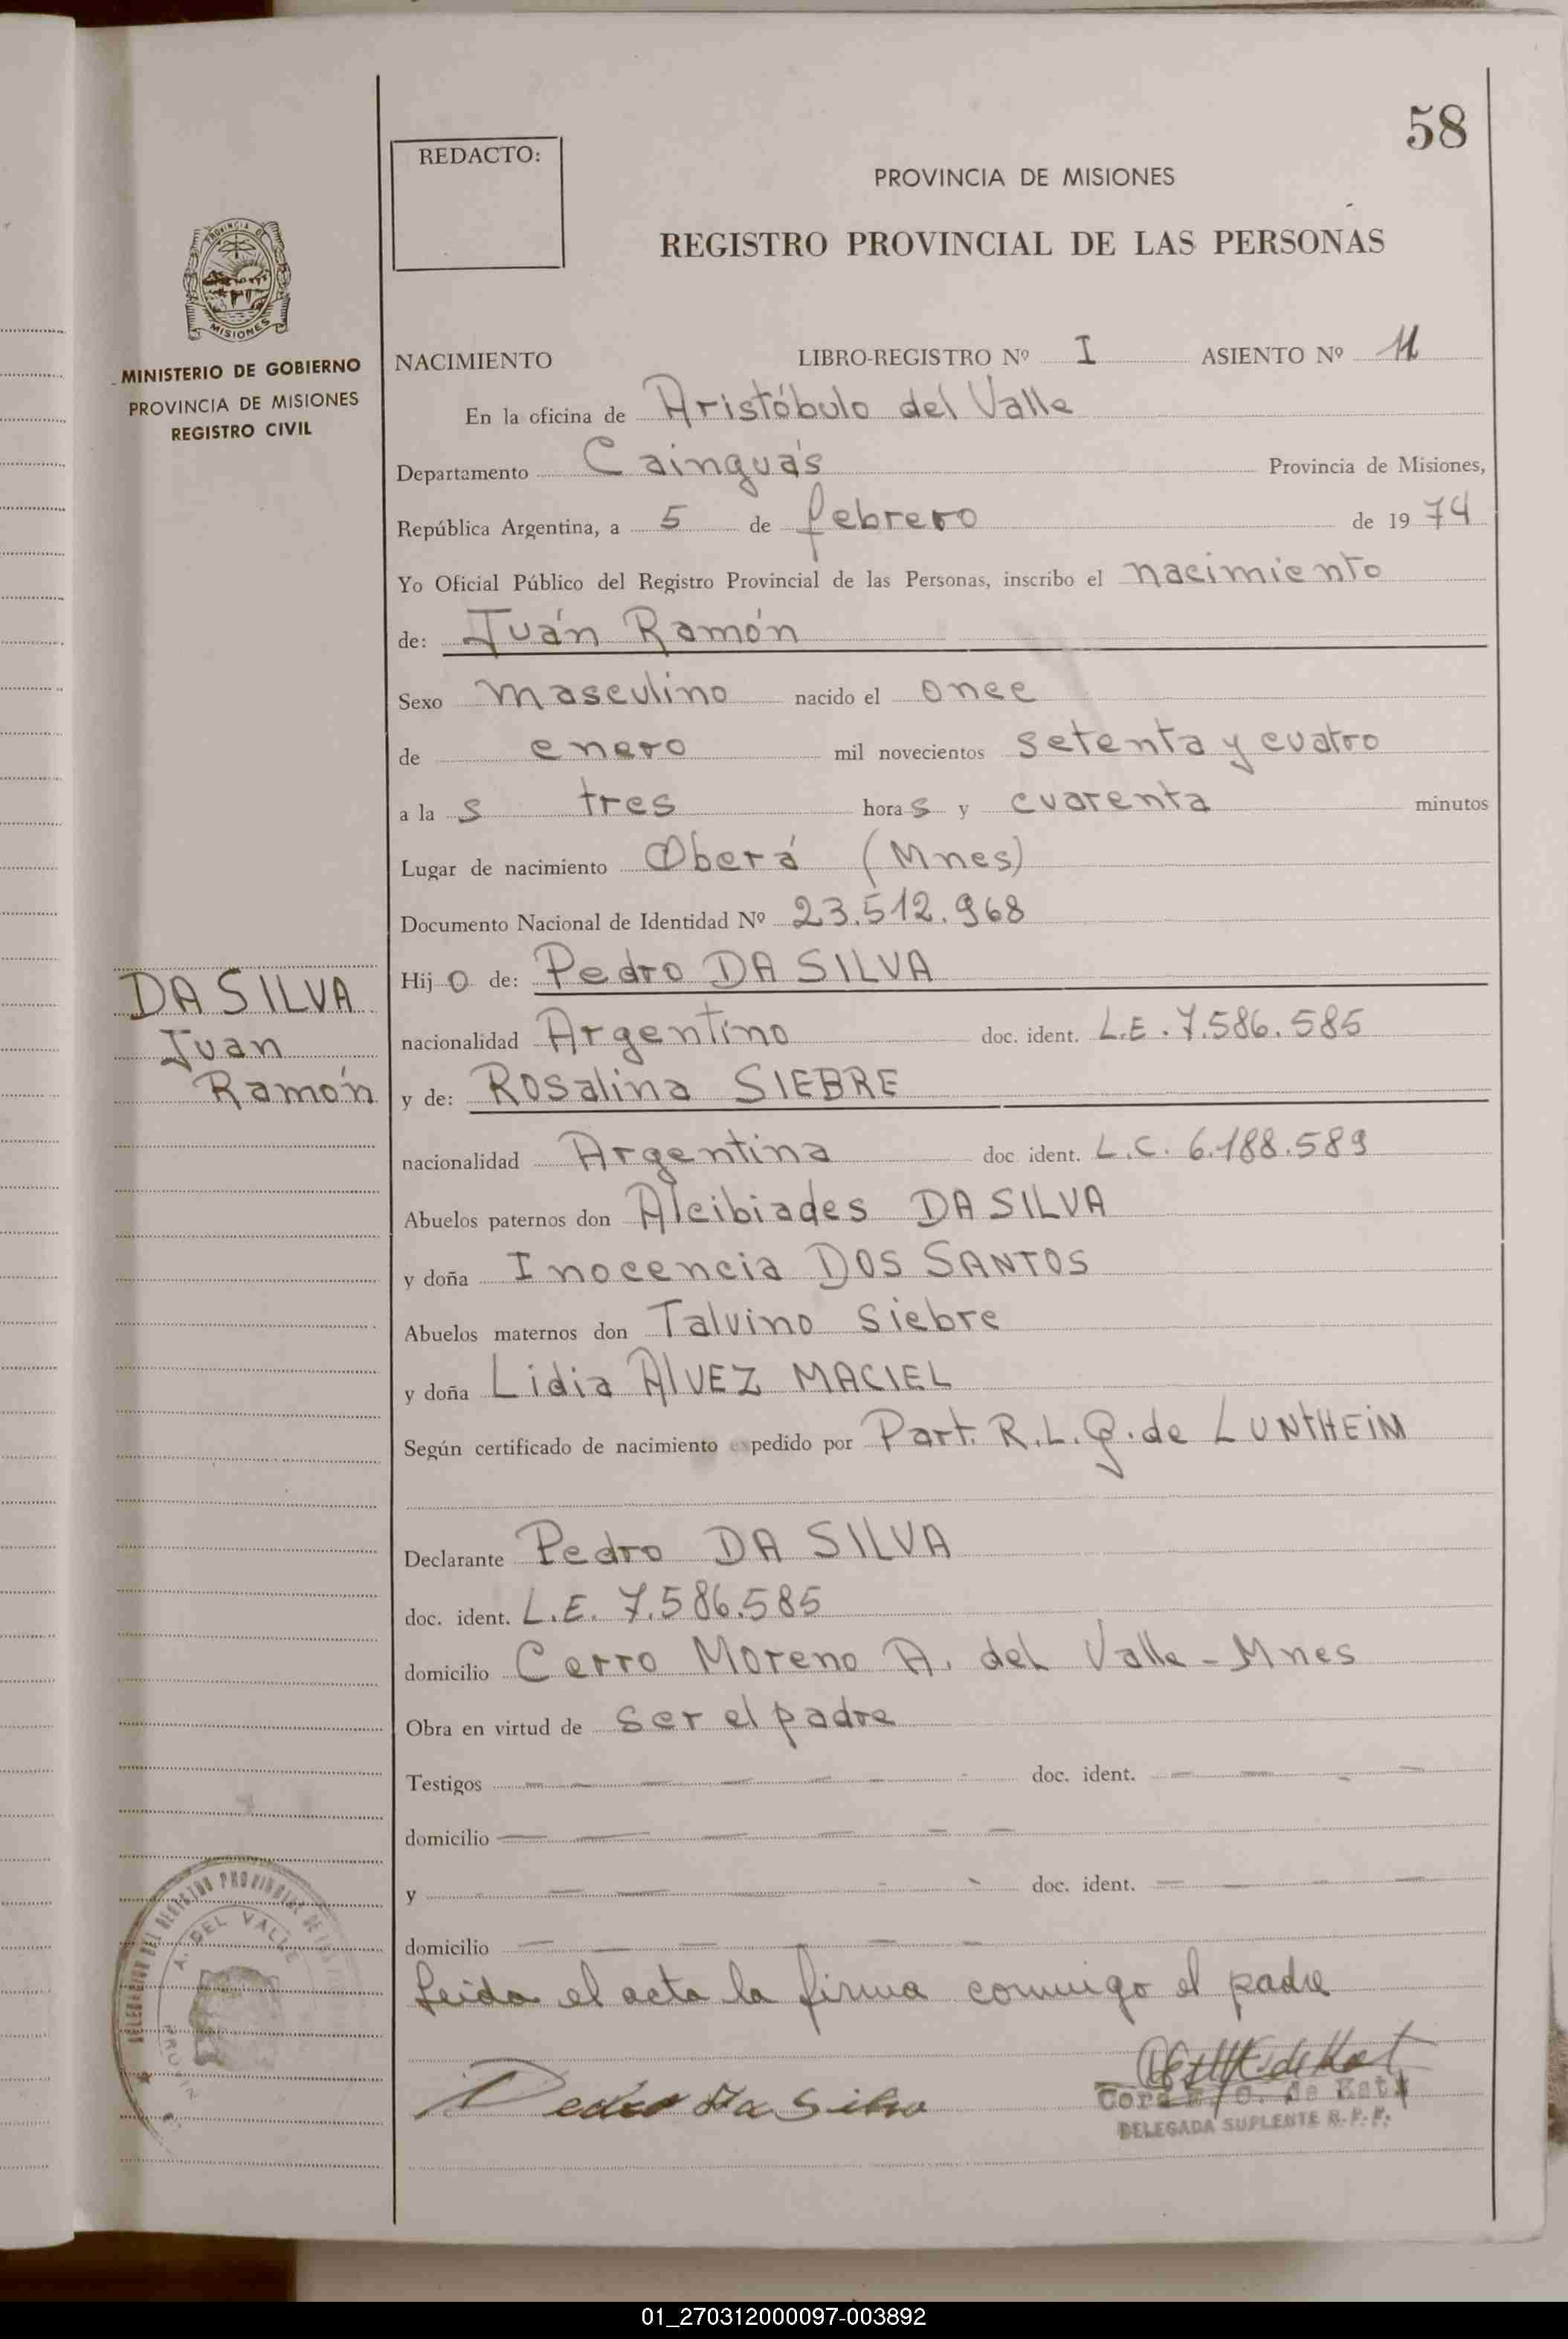 58
REDACTO:
PROVINCIA DE MISIONES
REGISTRO PROVINCIAL DE LAS PERSONAS
PROVINCIA DE
MISIONES
MINISTERIO DE GOBIERNO
PROVINCIA DE MISIONES
REGISTRO CIVIL
NACIMIENTO LIBRO-REGISTRO Nº I ASIENTO Nº 11
En la oficina de Aristóbulo del Valle
Departamento Cainguás Provincia de Misiones,
República Argentina, a 5 de febrero de 1974
Yo Oficial Público del Registro Provincial de las Personas, inscribo el nacimiento
de: Juán Ramón
Sexo masculino nacido el once
de enero mil novecientos setenta y cuatro
a las tres horas y cuarenta minutos
Lugar de nacimiento Oberá (Mnes)
Documento Nacional de Identidad Nº 23.512.968
DA SILVA
Juan
Ramón
Hijo de: Pedro DA SILVA
nacionalidad Argentino doc. ident. L.E. 7.586.585
y de: Rosalina SIEBRE
nacionalidad Argentina doc ident. L.C. 6.188.589
Abuelos paternos don Alcibiades DA SILVA
y doña Inocencia DOS SANTOS
Abuelos maternos don Talvino Siebre
y doña Lidia AlVEZ MACIEL
Según certificado de nacimiento expedido por Part. R.L.G. de LUNtHEiM
Declarante Pedro DA SILVA
doc. ident. L.E. 7.586.585
domicilio Cerro Moreno A. del Valle - Mnes
Obra en virtud de ser el padre
Testigos doc. ident.
domicilio
y doc. ident.
domicilio
leida el acta la firma conmigo el padre
Pedro Da Silva
DELEGADA SUPLENTE R.P.P.
A. DEL VALLE
01_270312000097-003892